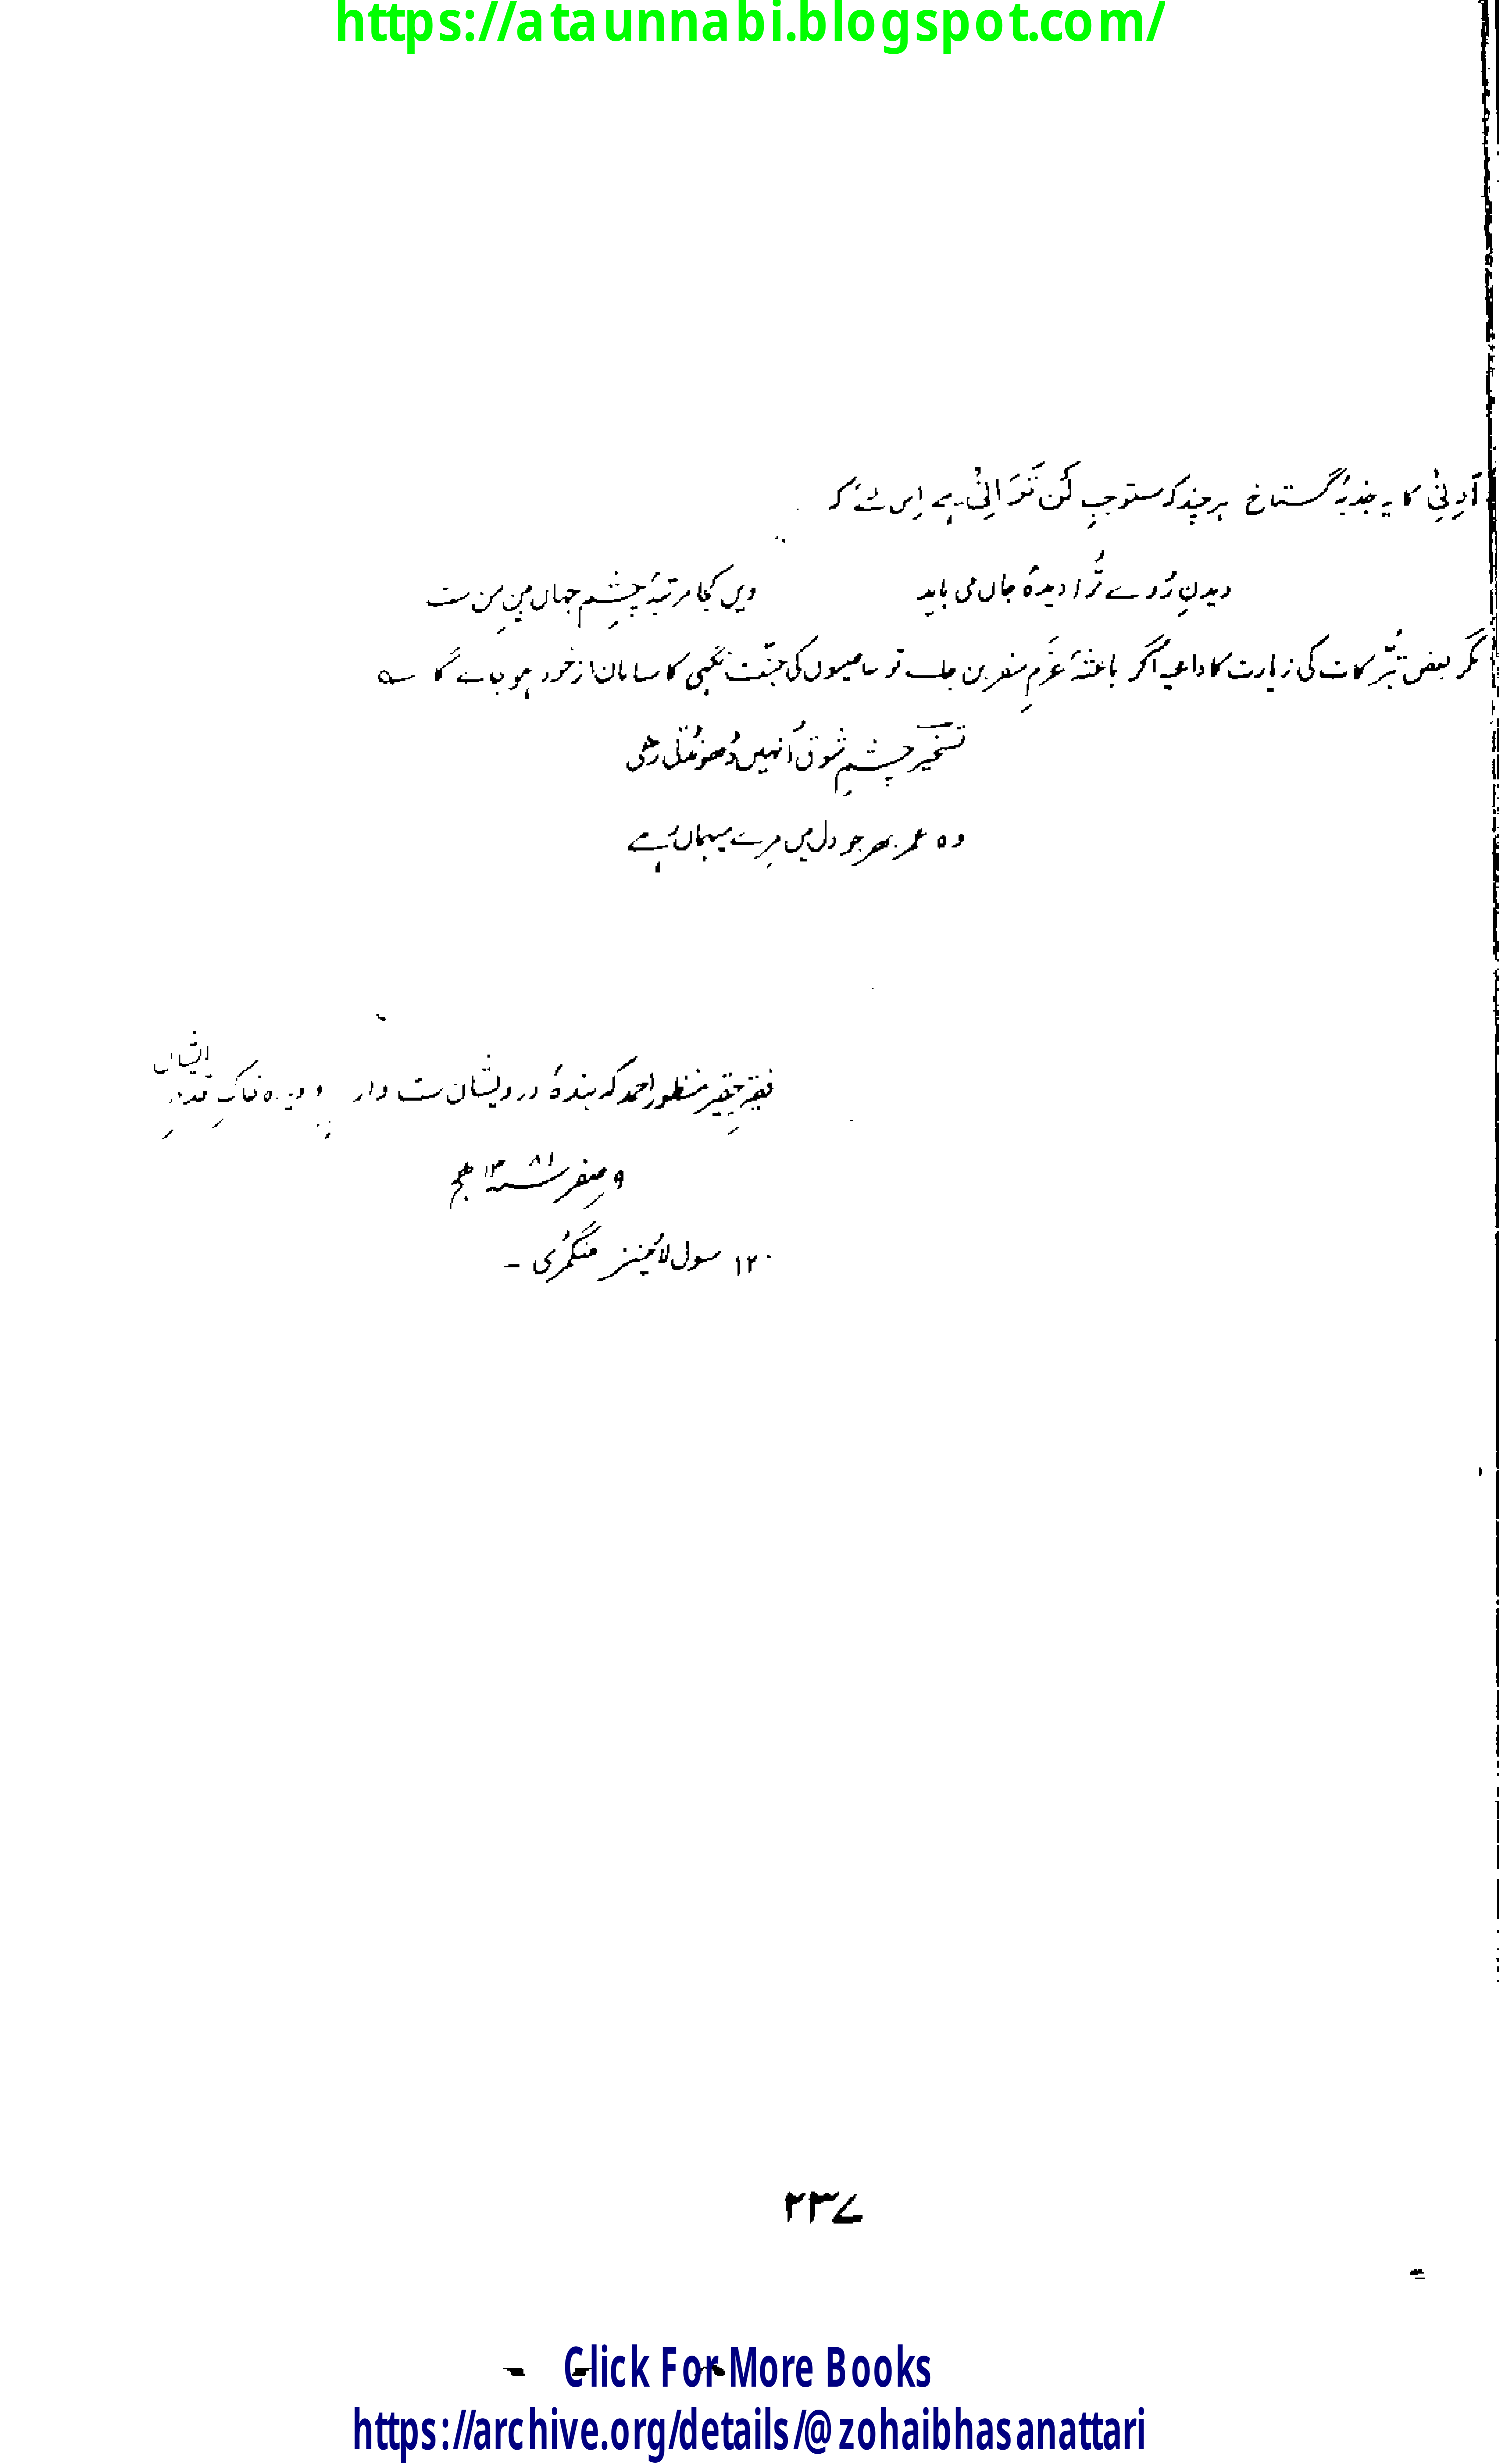 https://ataunnabi.blogspot.com/
اَرِنِیْ کا یہ جذبۂ گستاخ ہرچند کہ مستوجبِ لَنْ تَرَانِیْ ہے اِس لئے کہ
دیدنِ رُوئے تُرا دیدۂ جاں می باید ویں کجا مرتبۂ چشمِ جہاں بینِ من ست
مگر بعض تبُّرکات کی زیارت کا داعیہ اگر باعثۂ عَزمِ سفر بن جائے تو عاصیوں کی جنّت نگہی کا سامان ازخود ہو جائے گا ؎
تسخیر چشمِ شوق اُنہیں ڈھونڈتی رہی
وہ عمر بھر جو دل میں مرے میہماں رہے
فقیرِ حقیر منظور احمد کہ بندۂ درویشان ست و از خاکِ قدمِ ایشاں
۹ صفر ۱۳۸۱ سنہ ھج
۱۲۰ سول لائینز منٹگمُری -
۲۳۷
Click For More Books
https://archive.org/details/@zohaibhasanattari